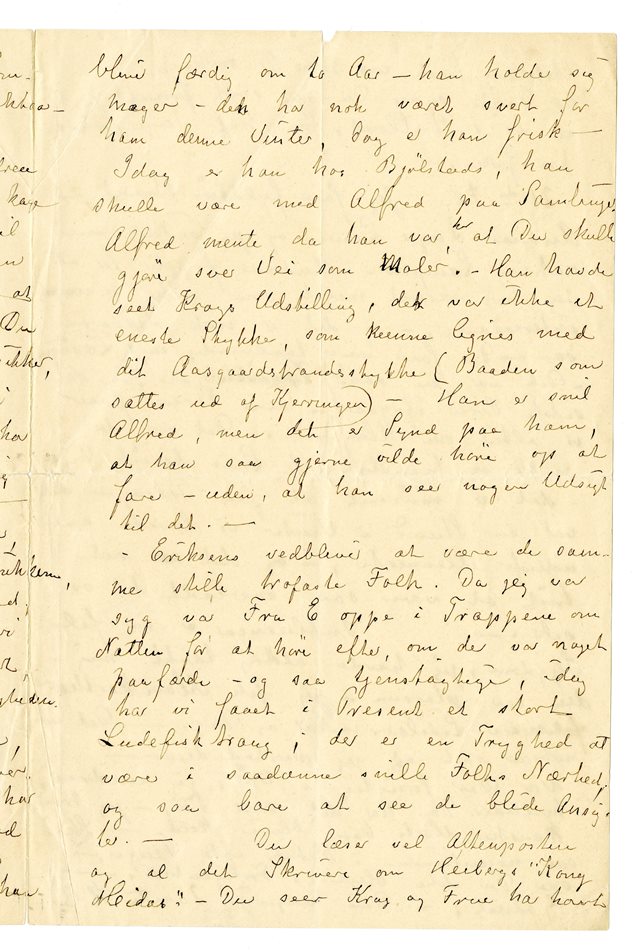 blive færdig om to Aar – han holde sig
mager – det har nok været svært for
ham denne Vinter, dog er han frisk –
Idag er han hos Bjölstads, han
skulle være med Alfred paa Samlinger.
Alfred mente, da han var her at Du skulle
gjöre svær Vei som Maler. – Han havde
seet Krogs Udstilling, det var ikke et
eneste Stykke, som kunne lignes med
dit Aasgaardstrandsstykke (Baaden som
sættes ud af Kjerringen) – Han er snil
Alfred, men det er Synd paa ham,
at han saa gjerne vilde höre op at
fare – uden, at han seer nogen Udsigt
til det. –
– Eriksens vedbliver at være de sam-
me stille trofaste Folk. Da jeg var
syg var Fru E oppe i Trappene om
Natten for at höre efter, om der var noget
paafærde – og saa tjenstagtige, idag
har vi faaet i Present et stort
Ludefisktraug; der er en Tryghed at
være i saadanne snille Folks Nærhed,
og saa bare at see de blide Ansig-
ter. – Du læser vel Aftenposten
og al det Skriveri om Heibergs "Kong
Midas". – Du seer Krog og Frue ha havt